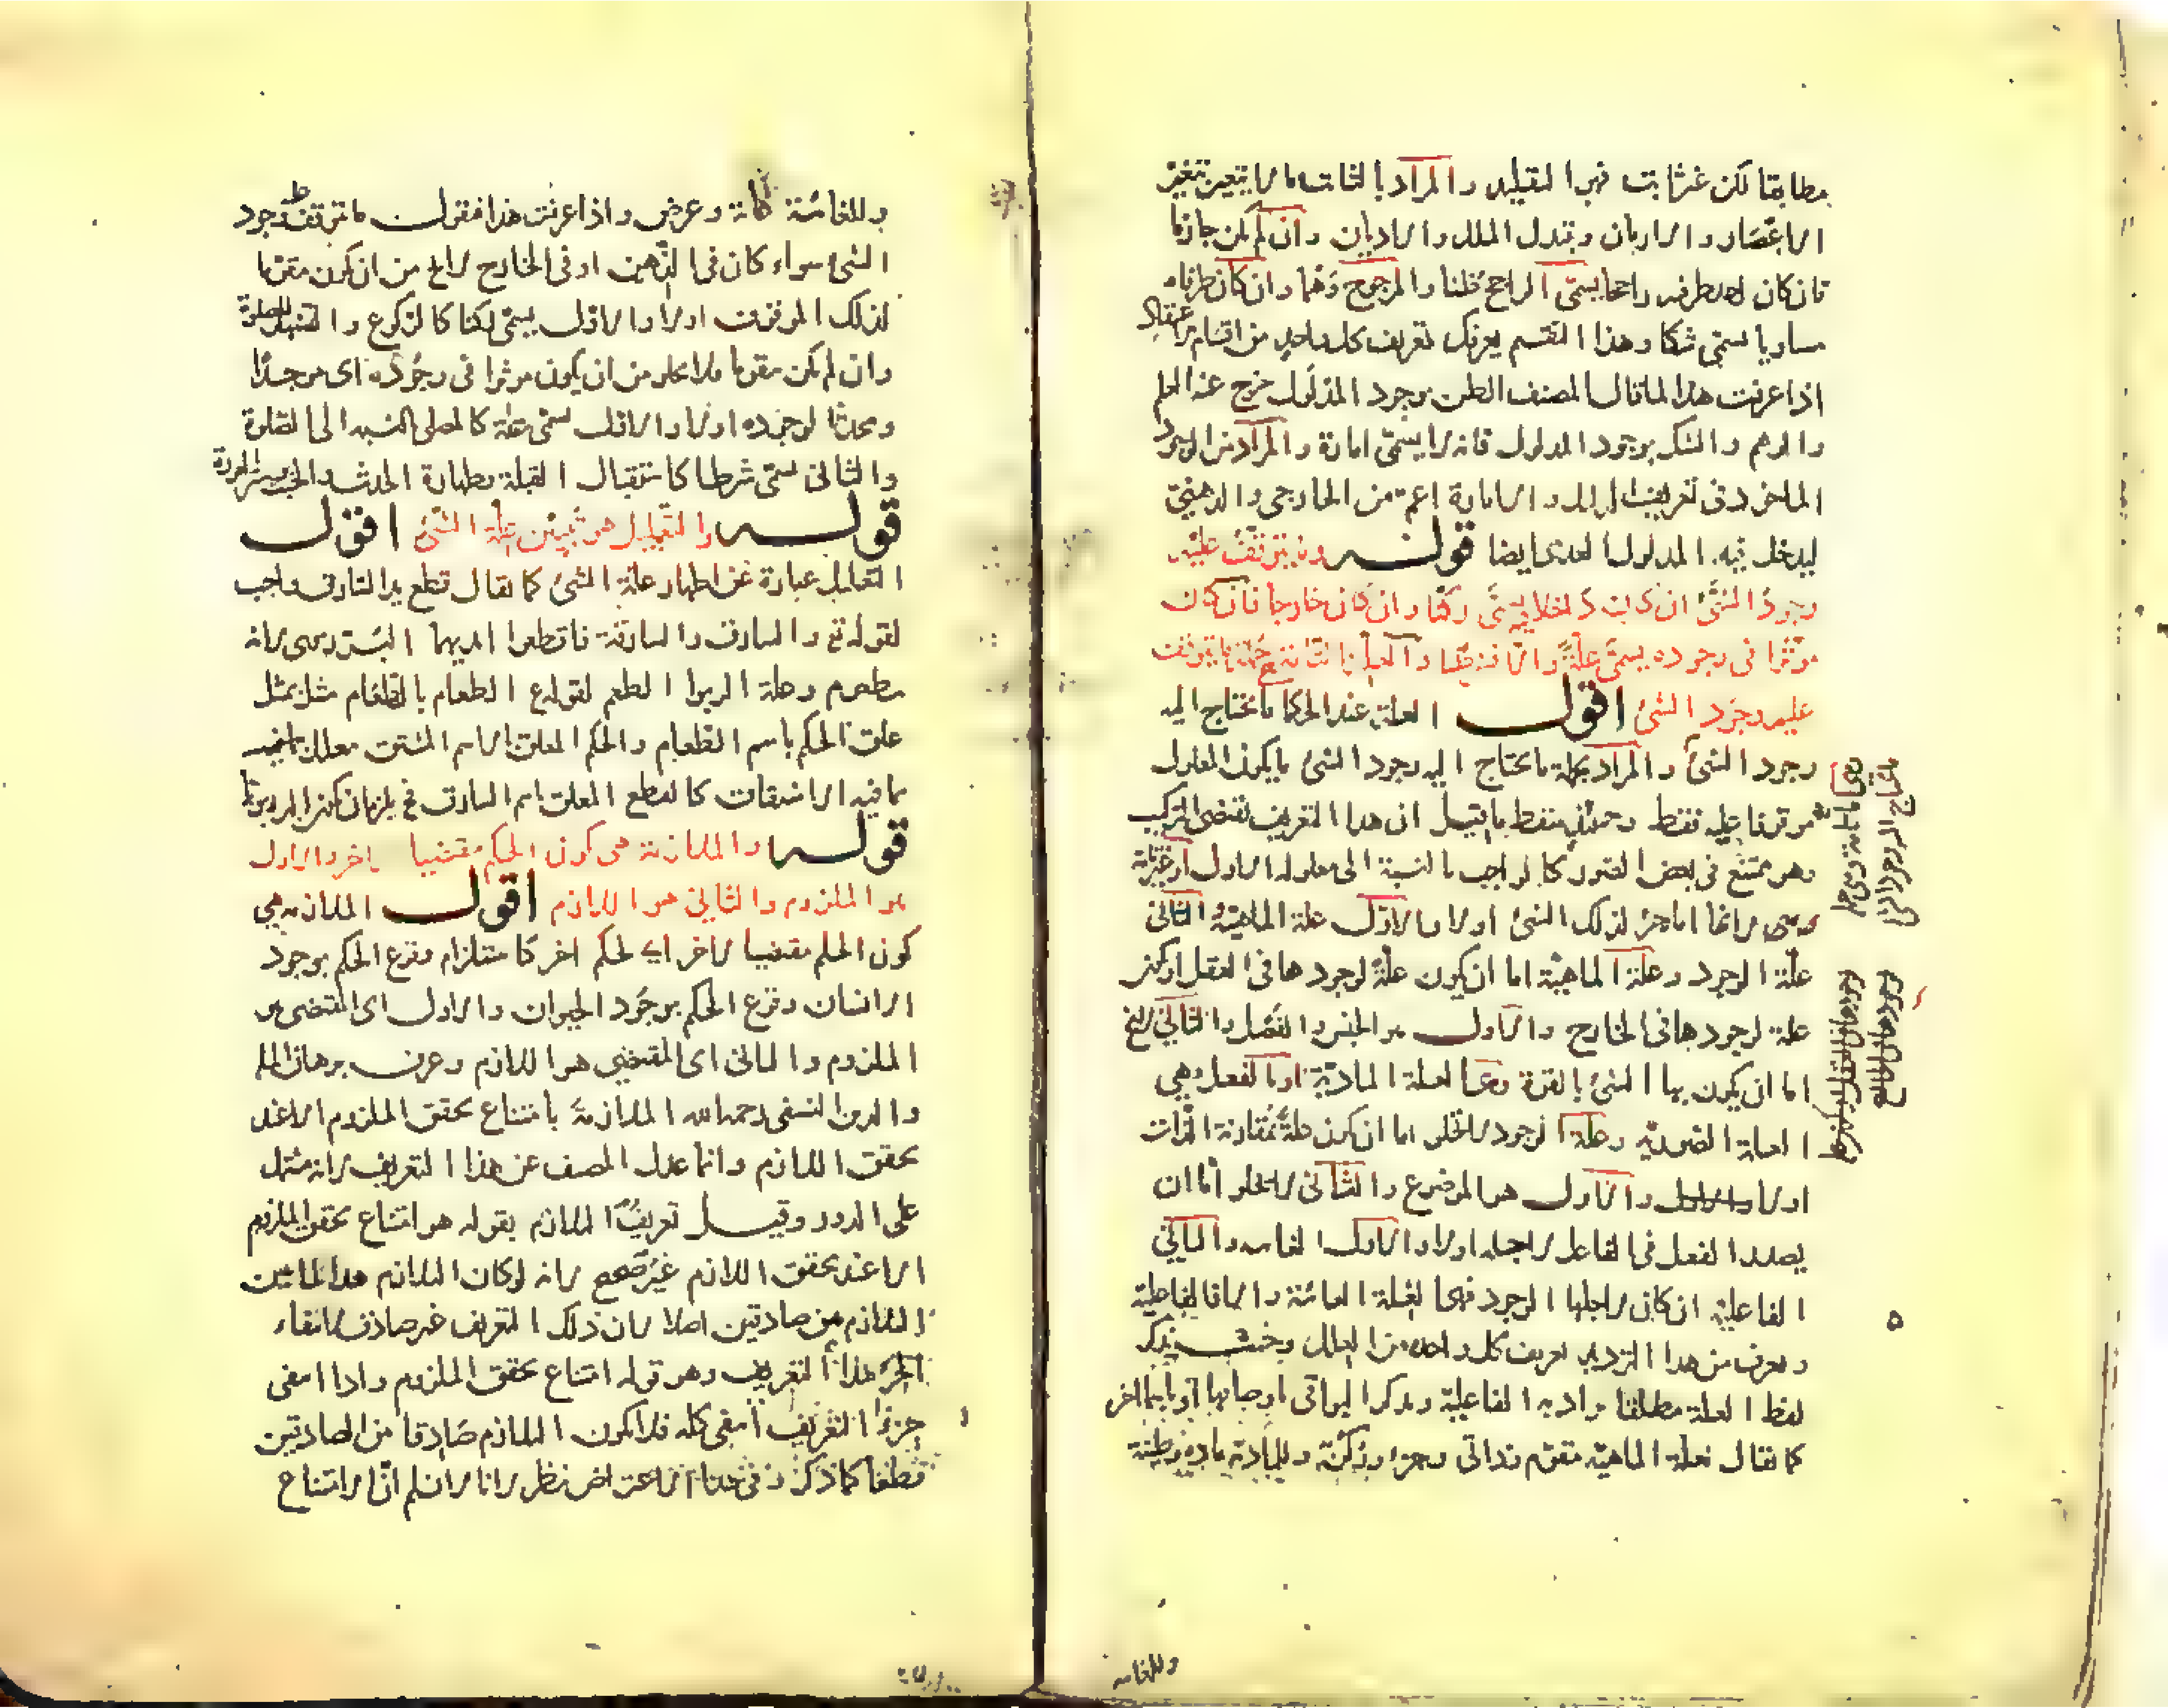 مطابقا لكن غير ثابت فهو التقليد والمراد بالثابت ما لا يتغير بتغير
الاعصار والازمان وتبدل الملل والاديان وان لم يكن جازما
فان كان احد طرفيه راجحا يسمى الراجح ظنا والمرجوح وهما وان كان طرفاه
مساويا يسمى شكا وهذا التقسيم يعرفك تعريف كل واحد من اقسام الاعتقاد
اذا عرفت هذا لما قال المصنف الظن بوجود المدلول خرج عنه العلم
والوهم والشك بوجود المدلول فانه لا يسمى امارة والمراد من الوجود
الماخوذ في تعريف الدليل والامارة اعم من الخارجي والذهني
ليدخل فيه المدلول العدمي ايضا قوله وما يتوقف عليه
وجود الشئ ان كان داخلا يسمى ركنا وان كان خارجا فان كان
موثرا في وجوده يسمى علة والا فشرطا والعلة التامة جملة ما يتوقف
عليه وجود الشئ اقول العلة عند الحكما ما يحتاج اليه
وجود الشئ والمراد بجملة ما يحتاج اليه وجود الشئ ما يكون المعلول
موقوفا عليه فقط وحينئذ سقط ما قيل ان هذا التعريف يقتضي التركيب
وهو ممتنع في بعض الصور كالواجب بالنسبة الى معلوله الاول
لانها اما جزء لذلك الشئ اولا والاول علة الماهية والثاني
علة الوجود وعلة الماهية اما ان يكون علة لوجودها في العقل او يكون
علة لوجودها في الخارج والاول هو الجنس والفصل والثاني
اما ان يكون بها الشئ بالقوة وهي العلة المادية او بالفعل وهي
العلة الصورية وعلة الوجود لا يخلو اما ان يكون علة مقارنة الذات
اولا والاول هو الموضوع والثاني لا يخلو اما ان
يصدر الفعل في الفاعل لاجله اولا والاول الغاية والثاني
الفاعلية ان كان لاجلها الوجود فهي العلة الغائية والا فالفاعلية
ويعرف من هذا الترديد تعريف كل واحد من العلل وحيث يذكر
لفظ العلة مطلقا يراد به الفاعلية ويذكر البواقي باوصافها او باسما اخر
كما يقال لعلة الماهية مقوم وذاتي وجزء وركن وللمادية مادة وطينة
وللغائية
وللغائية غاية وغرض واذا عرفت هذا فنقول ما يتوقف عليه وجود
الشئ سواء كان في الذهن او في الخارج لا يخ من ان يكون مقوما
لذلك الموقوف اولا والاول يسمى ركنا كالركوع والسجود للصلوة
وان لم يكن مقوما فلا يخلو من ان يكون موثرا في وجوده اى موجدا
ومحدثا لوجوده اولا والاول يسمى علة كالمصلي بالنسبة الى الصلوة
والثاني يسمى شرطا كاستقبال القبلة وطهارة الحدث والخبث وستر العورة
قوله والتعليل هو تبيين علة الشئ اقول
التعليل عبارة عن اظهار علة الشئ كما يقال قطع يد السارق واجب
لقوله تع والسارق والسارقة فاقطعوا ايديهما
مطعوم وعلة الربوا الطعم لقوله ع الطعام بالطعام مثل بمثل
علق الحكم باسم الطعام والحكم المعلق بالاسم المشتق معلل
بما فيه الاشتقاق كالقطع المعلق باسم السارق
قوله والملازمة هي كون الحكم مقتضيا لاخر والاول
هو الملزوم والثاني هو اللازم اقول الملازمة هي
كون الحكم مقتضيا لاخر اى لحكم اخر كاستلزام وقوع الحكم بوجود
الانسان وقوع الحكم بوجود الحيوان والاول اى المقتضي هو
الملزوم والثاني اى المقتضى هو اللازم وعرف برهان الملة
والدين النسفي رحمه الله الملازمة بامتناع تحقق الملزوم الا عند
تحقق اللازم وانما عدل المصنف عن هذا التعريف لانه مشتمل
على الدور وقيل تعريف اللازم بقوله هو امتناع تحقق الملزوم
الا عند تحقق اللازم غير صحيح لانه لو كان اللازم هذا لما ثبت
اللازم من صادقين اصلا لان ذلك التعريف غير صادق لانتفاء
الجزء هذا التعريف وهو قوله امتناع تحقق الملزوم واذا انتفى
جزء التعريف انتفى كله فلا يكون اللازم صادقا من الصادقين
قطعا كما ذكر وفي هذا الاعتراض نظر لانا لا نسلم ان الامتناع